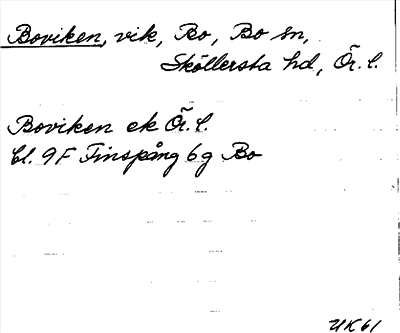 Boviken, vik, Bo, Bo sn,
Sköllersta hd, Ör. l.
Boviken ek Ör. l.
bl. 9F Finspång 6g Bo
UK 61